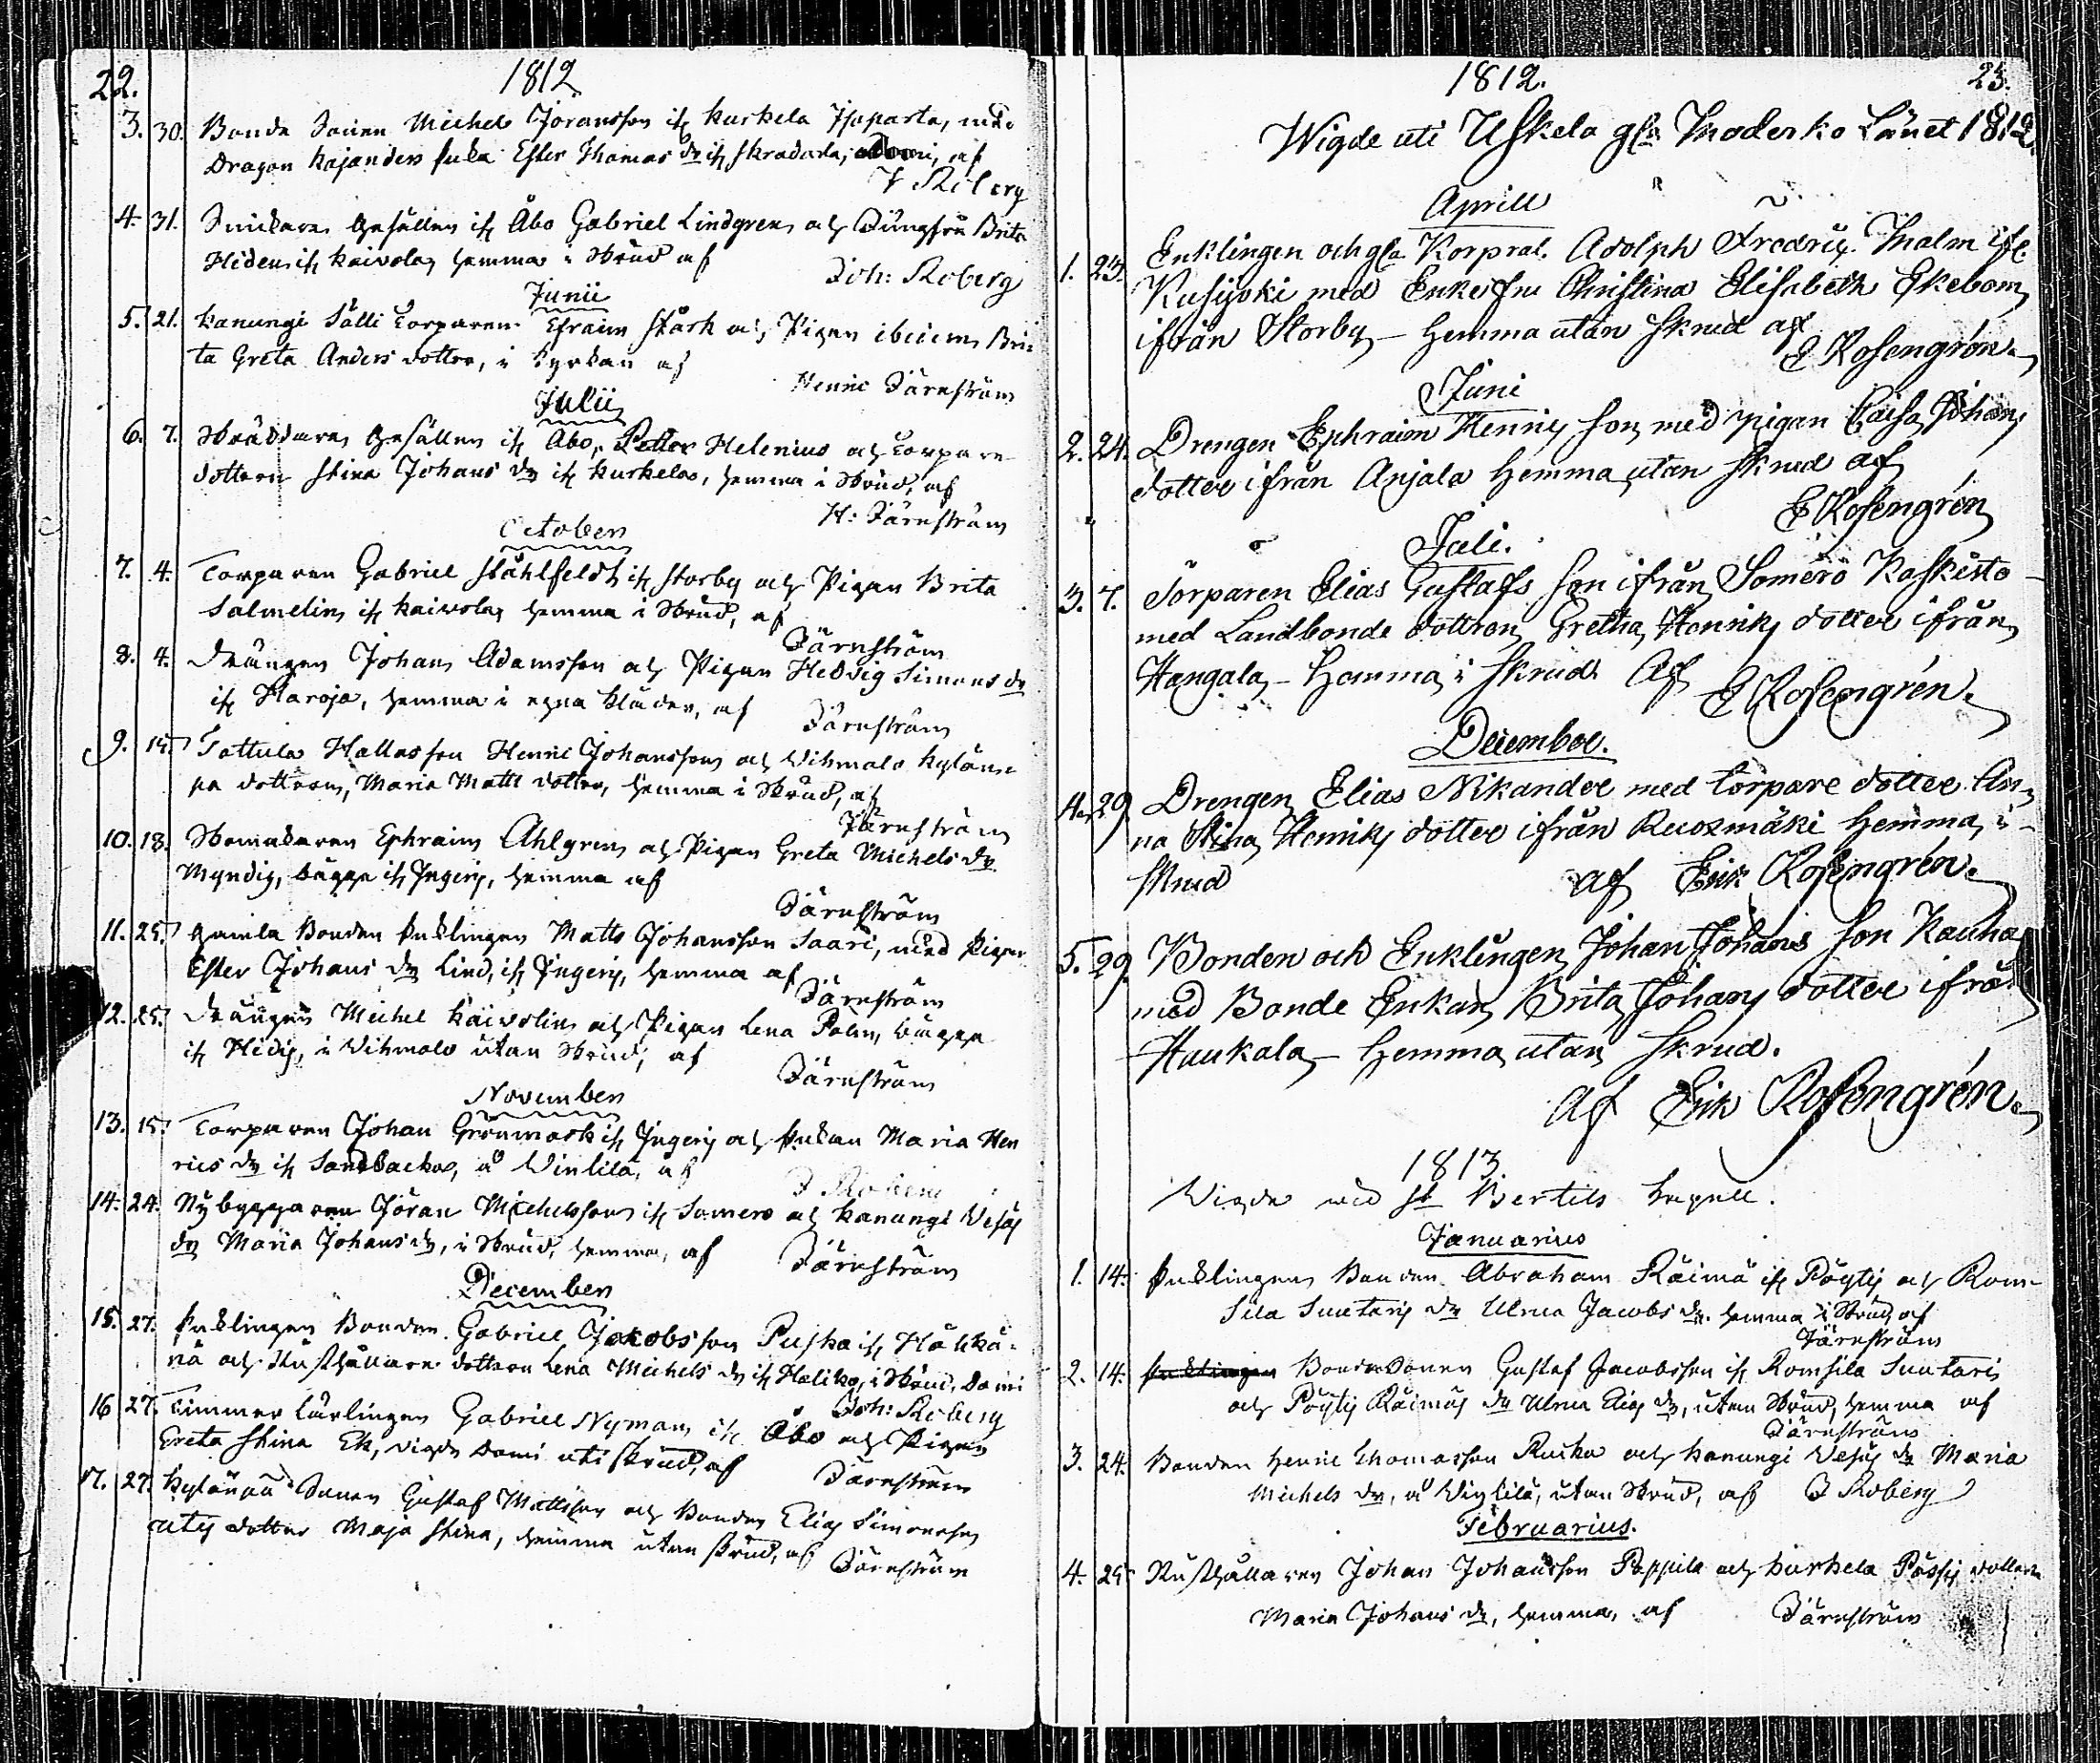 22.
1812
3. 30. Bonde Sonen Michel Joransson ifr Kurkela Isoparta, med
Dragon Kajanders Enka Ester Thomas dr ifr Skradarla, domi, af
J Roberg
4. 31. Snickare Gesällen ifr Åbo Gabriel Lindgren och Jungfru Brita
Hiden ifr Kaivola, hemma i Skrud af
Joh: Roberg
Junii
5. 21. Kanungi Sälli Torparen Efraim Stark och Pigan ibidem Bri-
ta Greta Anders dotter, i Kyrkan af
Henric Järnström
Julii
6. 7. Skräddare Gesällen ifr Åbo, Petter Helenius och Torpare
dottern Stina Johans dr ifr Kurkela, hemma i Skrud, af
H: Järnström
October
7. 4. Torparen Gabriel Ståhlfeldt ifr Storby och Pigan Brita
Salmelin ifr Kaivola, hemma i Skrud, af
Järnström
8. 4. Drängen Johan Adamsson och Pigan Hedvig Simons dr
ifr Haroja, hemma i egna kläder, af
Järnström
9. 15. Tattula Hallas son Henric Johansson och Vihmalo Kylänn-
pä dottren, Maria Matts dotter, hemma i Skrud, af
Järnström
10. 18. Skomakaren Ephraim Ahlgren och Pigan Greta Michels dr
Myndig, bägge ifr Ingeris, hemma af
Järnström
11. 25. Gamla Bonden Enklingen Matts Johansson Saari, med Pigan
Ester Johans dr Lind, ifr Ingeris, hemma af
Järnström
12. 25. Drängen Michel Kaivolin och Pigan Lena Palin, bägge
ifr Hidis, i Vihmalo utan Skrud, af
Järnström
November
13. 15. Torparen Johan Grönmark ifr Ingeris och Enkan Maria Hen
rics dr ifr Sandbacka, å Vinlilä, af
J Roberg
14. 24. Nybyggaren Jöran Michelsson ifr Somero och Kanungi Vesas
dr Maria Johans dr, i Skrud, hemma, af
Järnström
December
15. 27. Enklingen Bonden Gabriel Jakobsson Puska ifr Häkkä-
nä och Rusthållare dottren Lena Michels dr ifr Haliko, i Skrud, domi
Joh: Roberg
16 27. Timmer lärlingen Gabriel Nyman ifr Åbo och Pigan
Greta Stina Ek, vigde domi uti Skrud, af
Järnström
17. 27. Kylänpä Sonen Gustaf Mattsson och Bonden Elias Simonsson
dotter Maja Stina, hemma utan skrud, af
Järnström
1812.
23.
Wigde uti Uskela gla Moderko Länet 1812.
Aprill
1. 23. Enklingen och gla Korpral. Adolph Fredric Malm ifr.
Kusijoki med Enke fru Christina Elisabeth Ekebom
ifrån Storby – hemma utan Skrud af
E Rosengrén.
Juni
2. 24. Drengen Ephraim Henrics son med pigan Caisa Johans
dotter ifrån Anjala hemma utan skrud af
E Rosengrén
Juli.
3. 7. Torparen Elias Gustafs son ifrån Somero Kaskisto
med Landbonde dottren Gretha Henriks dotter ifrån
Hangala – hemma i Skrud Af
E Rosengrén.
December.
4. 29. Drengen Elias Nikander med torpare dotter An-
na Stina Henriks dotter ifrån Ruosmäki hemma i
Skrud
af Erik Rosengrén.
5. 29. Bonden och Enklingen Johan Johans son Kauha
med Bonde Enkan Brita Johans dotter ifrån
Haukala – hemma utan Skrud.
af Erik Rosengrén.
1813.
Vigde vid St Bertils Capell.
Januarius
1. 14. Enklingen Bonden Abraham Räimä ifr Pöytis och Rom-
sila Suutaris dr Ulrica Jacobs dr. hemma i Skrud af
Järnström
2. 14. Enklingen Bonde Sonen Gustaf Jacobsson ifr Romsila Suutaris
och Pöytis Räimäs dr Ulrica Elias dr, utan Skrud, hemma af
Järnström
3. 24. Bonden Henric Thomasson Rucka och Kanungi Vesas dr Maria
Michels dr, å Vinlilä, utan Skrud, af J Roberg
Februarius.
4. 25. Rusthållaren Johan Johansson Pappila och Kurkela Pässis dottern
Maria Johans dr, hemma, af Järnström